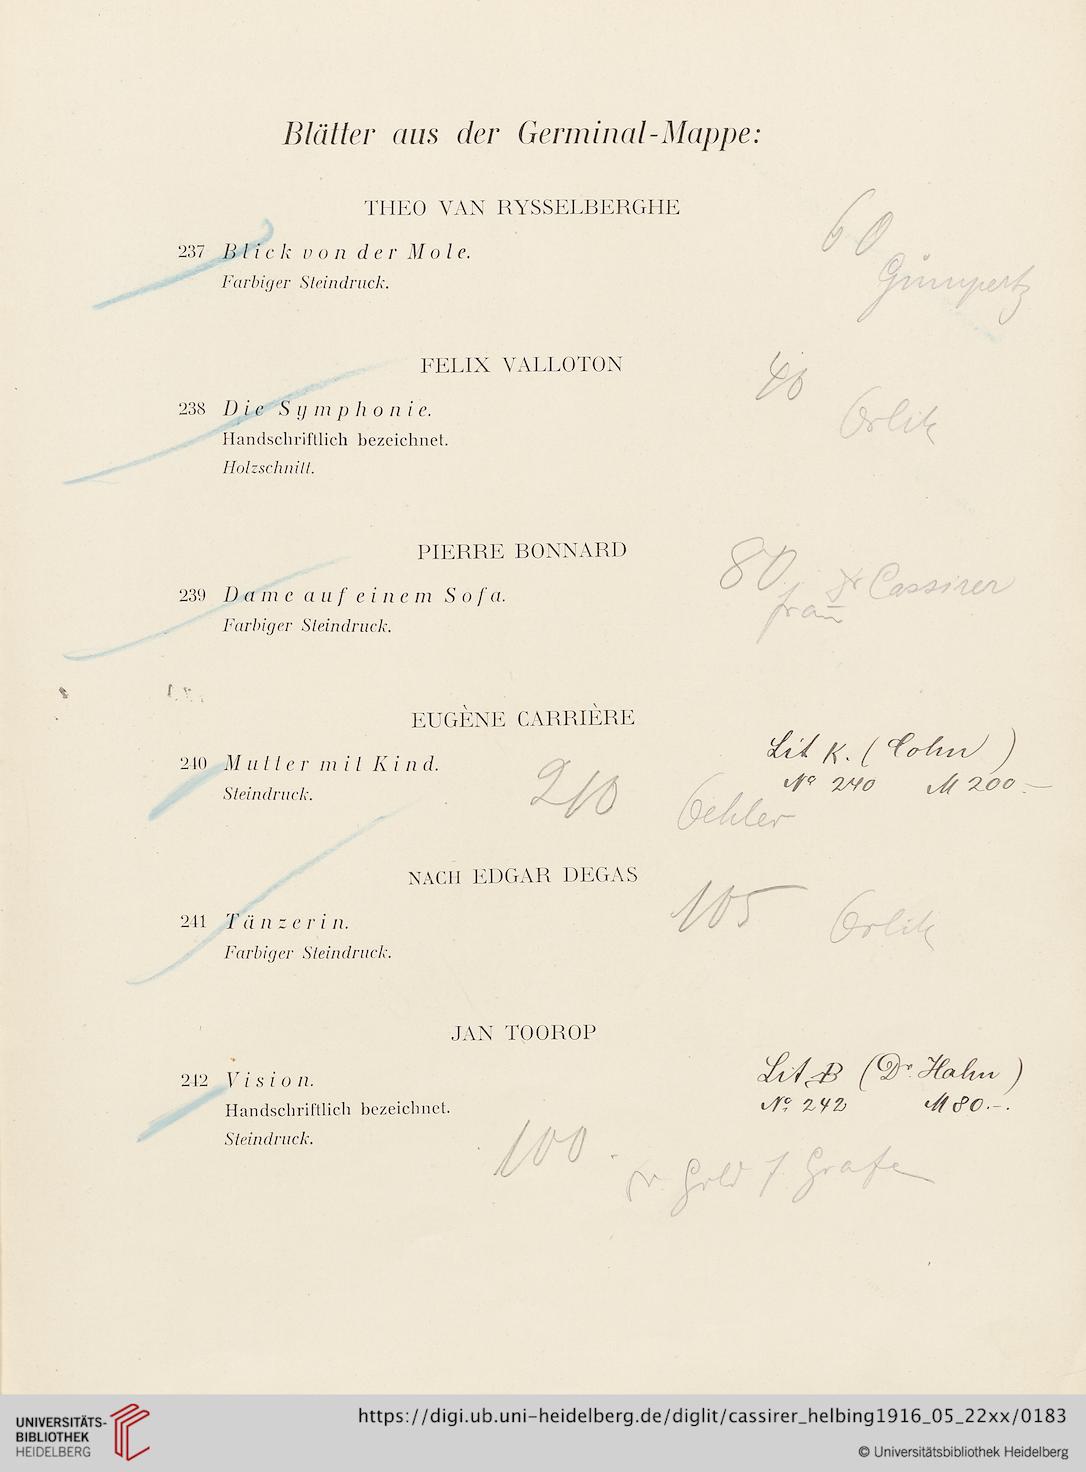 Blätter aus der Germinal-Mappe:
THEO VAN RYSSELBERGHE
60
237 Blick von der Mole.
Farbiger Steindruck.
Gumpertz
FELIX VALLOTON
40
238 Die Symphonie.
Orlik
Handschriftlich bezeichnet.
Holzschnitt.
PIERRE BONNARD
80
239 Dame auf einem Sofa.
frau Dr Cassirer
Farbiger Steindruck.
EUGÈNE CARRIÈRE
Lit K. (Cohn)
240 Mutter mit Kind.
No 240 M 200.—
Steindruck.
210 Oehler
NACH EDGAR DEGAS
105
241 Tänzerin.
Orlik
Farbiger Steindruck.
JAN TOOROP
242 Vision.
Lit B (Dr. Hahn)
No. 242 M 80.-.
Handschriftlich bezeichnet.
Steindruck.
100
UNIVERSITÄTS-
BIBLIOTHEK
HEIDELBERG
https://digi.ub.uni-heidelberg.de/diglit/cassirer_helbing1916_05_22xx/0183
© Universitätsbibliothek Heidelberg